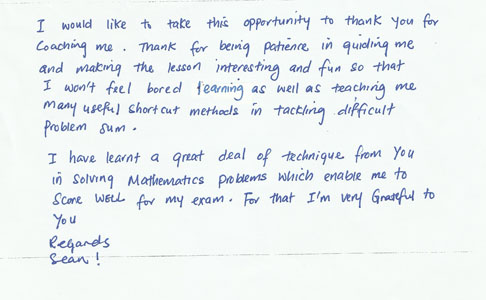 I would like to take this opportunity to thank you for
Coaching me. Thank for being patience in guiding me
and making the lesson interesting and fun so that
I won't feel bored learning as well as teaching me
many useful short cut methods in tackling difficult
problem sum.
I have learnt a great deal of technique from you
in solving Mathematics problems which enable me to
Score WELL for my exam. For that I'm very Grateful to
you
Regards
Sean!